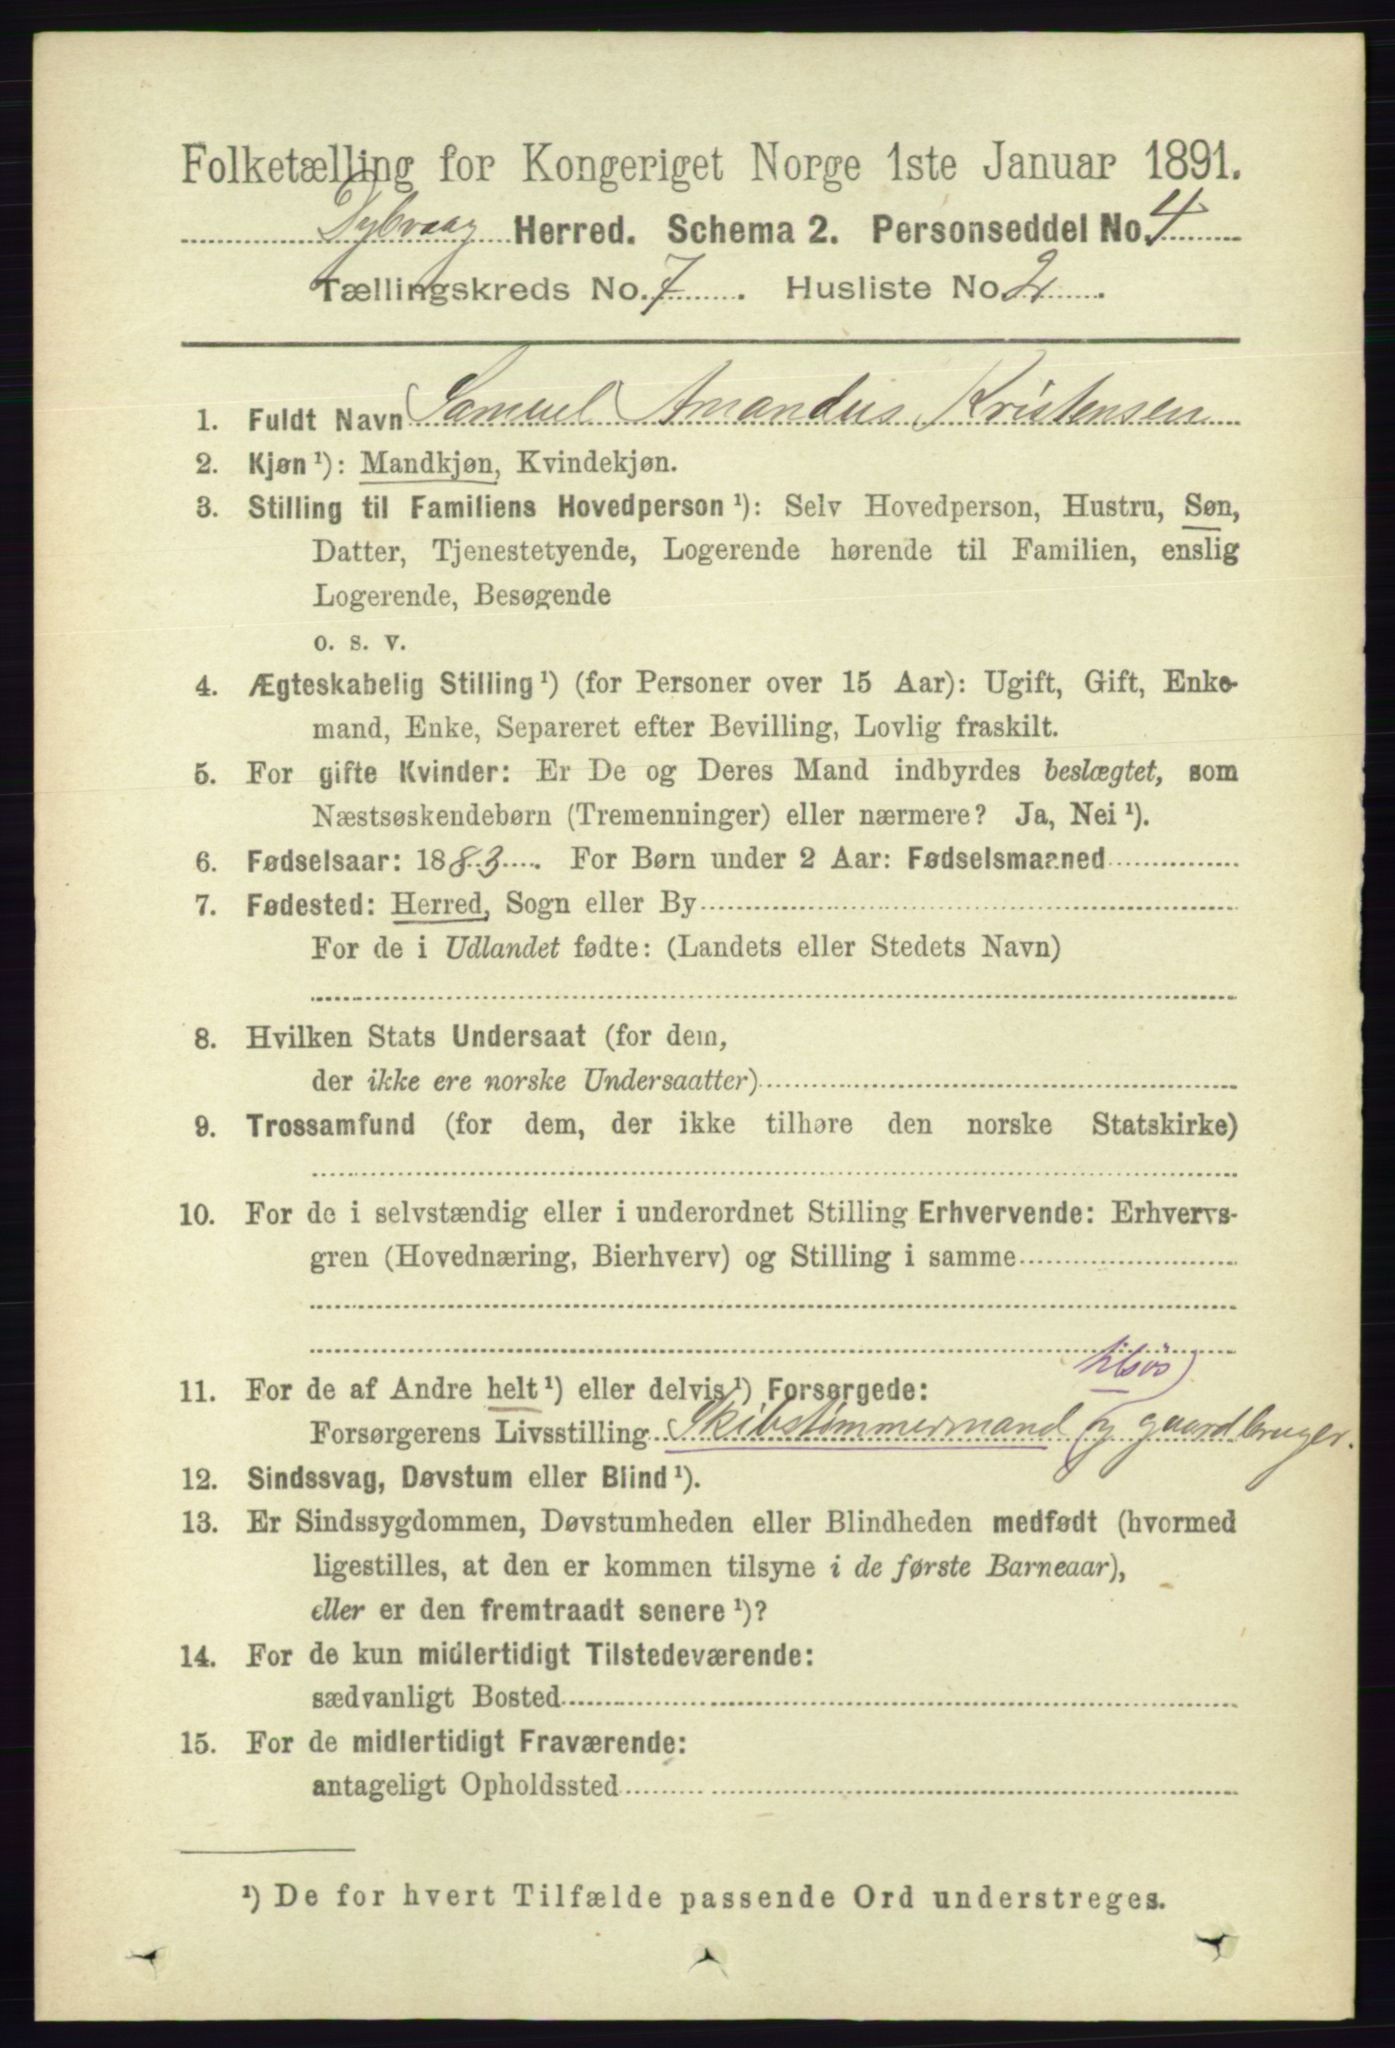 Folketælling for Kongeriget Norge 1ste Januar 1891.
Dybvaag Herred. Schema 2. Personseddel No. 4
Tællingskreds No. 7. Husliste No. 2.
1. Fuldt Navn Samuel Amandus Kristensen
2. Kjøn ¹): Mandkjøn, Kvindekjøn.
3. Stilling til Familiens Hovedperson ¹): Selv Hovedperson, Hustru, Søn,
Datter, Tjenestetyende, Logerende hørende til Familien, enslig
Logerende, Besøgende
o. s. v.
4. Ægteskabelig Stilling ¹) (for Personer over 15 Aar): Ugift, Gift, Enke-
mand, Enke, Separeret efter Bevilling, Lovlig fraskilt.
5. For gifte Kvinder: Er De og Deres Mand indbyrdes beslægtet, som
Næstsøskendebørn (Tremenninger) eller nærmere? Ja, Nei ¹).
6. Fødselsaar: 1883. For Børn under 2 Aar: Fødselsmaaned
7. Fødested: Herred, Sogn eller By
For de i Udlandet fødte: (Landets eller Stedets Navn)
8. Hvilken Stats Undersaat (for dem,
der ikke ere norske Undersaatter)
9. Trossamfund (for dem, der ikke tilhøre den norske Statskirke)
10. For de i selvstændig eller i underordnet Stilling Erhvervende: Erhvervs-
gren (Hovednæring, Bierhverv) og Stilling i samme
tilsøs
11. For de af Andre helt ¹) eller delvis ¹) Forsørgede:
Forsørgerens Livsstilling Skibstømmermand (og gaardbruger.
12. Sindssvag, Døvstum eller Blind ¹).
13. Er Sindssygdommen, Døvstumheden eller Blindheden medfødt (hvormed
ligestilles, at den er kommen tilsyne i de første Barneaar),
eller er den fremtraadt senere ¹)?
14. For de kun midlertidigt Tilstedeværende:
sædvanligt Bosted
15. For de midlertidigt Fraværende:
antageligt Opholdssted
¹) De for hvert Tilfælde passende Ord understreges.